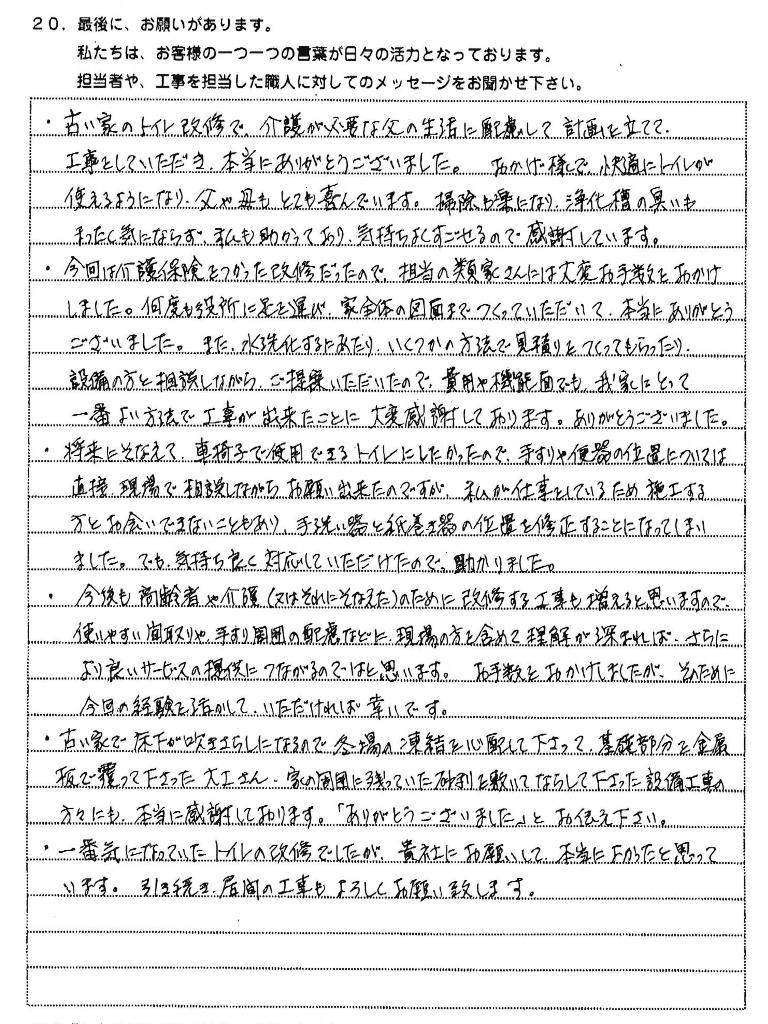 20．最後に、お願いがあります。
私たちは、お客様の一つ一つの言葉が日々の活力となっております。
担当者や、工事を担当した職人に対してのメッセージをお聞かせ下さい。
・古い家のトイレ改修で、介護が必要な父の生活に配慮して計画を立てて、
工事をしていただき、本当にありがとうございました。 おかげ様で、快適にトイレが
使えるようになり、父や母もとても喜んでいます。掃除も楽になり、浄化槽の臭いも
まったく気にならず、私も助かっており、気持ちよくすごせるので感謝しています。
・今回は介護保険をつかった改修だったので、担当の類家さんには大変お手数をおかけ
しました。何度も役所に足を運び、家全体の図面までつくっていただいて、本当にありがとう
ございました。また、水洗化するにあたり、いくつかの方法で見積りをつくってもらったり、
設備の方と相談しながら、ご提案いただいたので、費用や機能面でも、我家にとって
一番よい方法で工事が出来たことに大変感謝しております。ありがとうございました。
・将来にそなえて、車椅子で使用できるトイレにしたかったので、手すりや便器の位置については
直接、現場で相談しながらお願い出来たのですが、私が仕事をしているため施工する
方とお会いできないこともあり、手洗い器と紙巻き器の位置を修正することになってしまい
ました。でも、気持ち良く対応していただけたので、助かりました。
・今後も高齢者や介護（又はそれにそなえた）のために改修する工事も増えると思いますので、
使いやすい間取りや、手すり周囲の配慮などに、現場の方も含めて理解が深まれば、さらに
より良いサービスの提供につながるのではと思います。 お手数をおかけしましたが、そのために
今回の経験を活かして、いただければ幸いです。
・古い家で床下が吹きさらしになるので冬場の凍結を心配して下さって、基礎部分を金属
板で覆って下さった大工さん、家の周囲に残っていた砂利を敷いてならして下さった設備工事の
方々にも、本当に感謝しております。「ありがとうございました」とお伝え下さい。
・一番気になっていたトイレの改修でしたが、貴社にお願いして、本当によかったと思って
います。 引き続き、居間の工事もよろしくお願い致します。